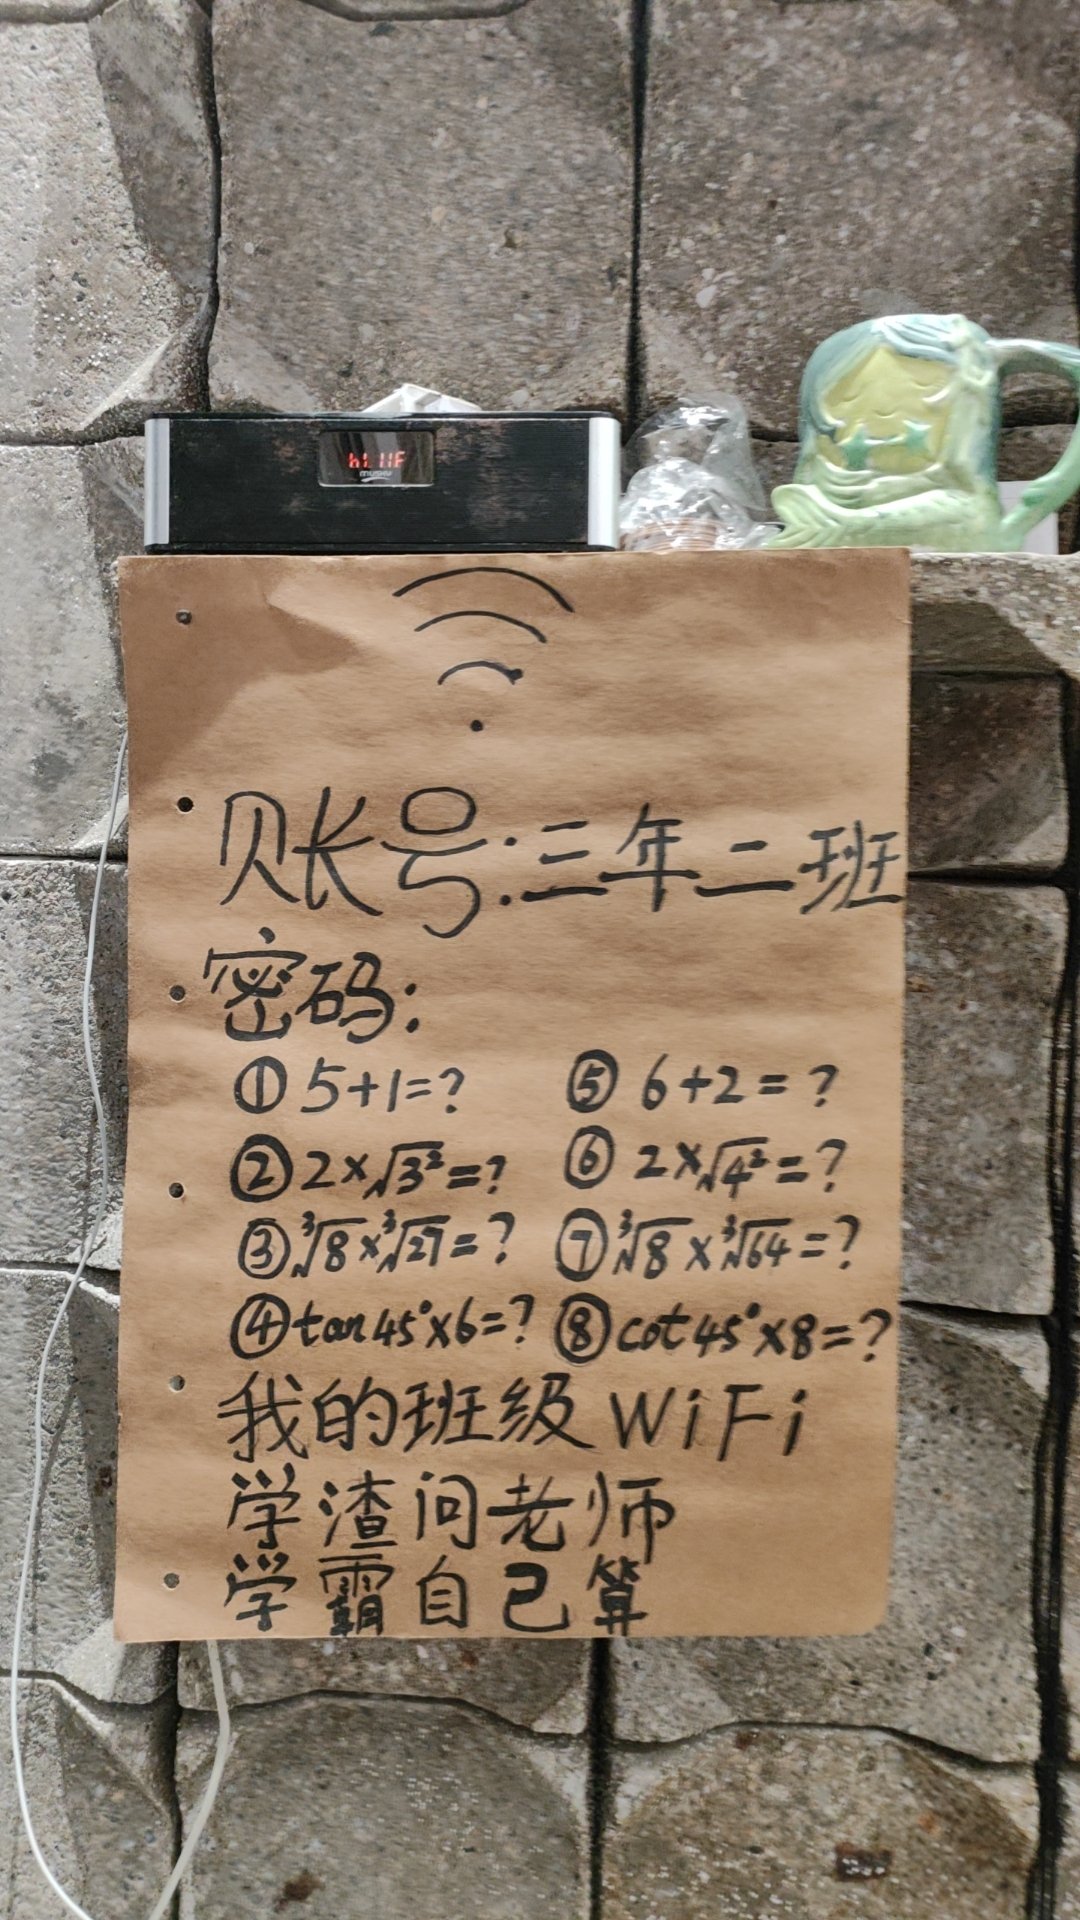 MUSKY
账号:三年二班
密码:
①5+1=? ⑤6+2=?
②2×√3²=? ⑥2×√4²=?
③³√8×³√27=? ⑦³√8×³√64=?
④tan45°×6=? ⑧cot45°×8=?
我的班级WiFi
学渣问老师
学霸自己算